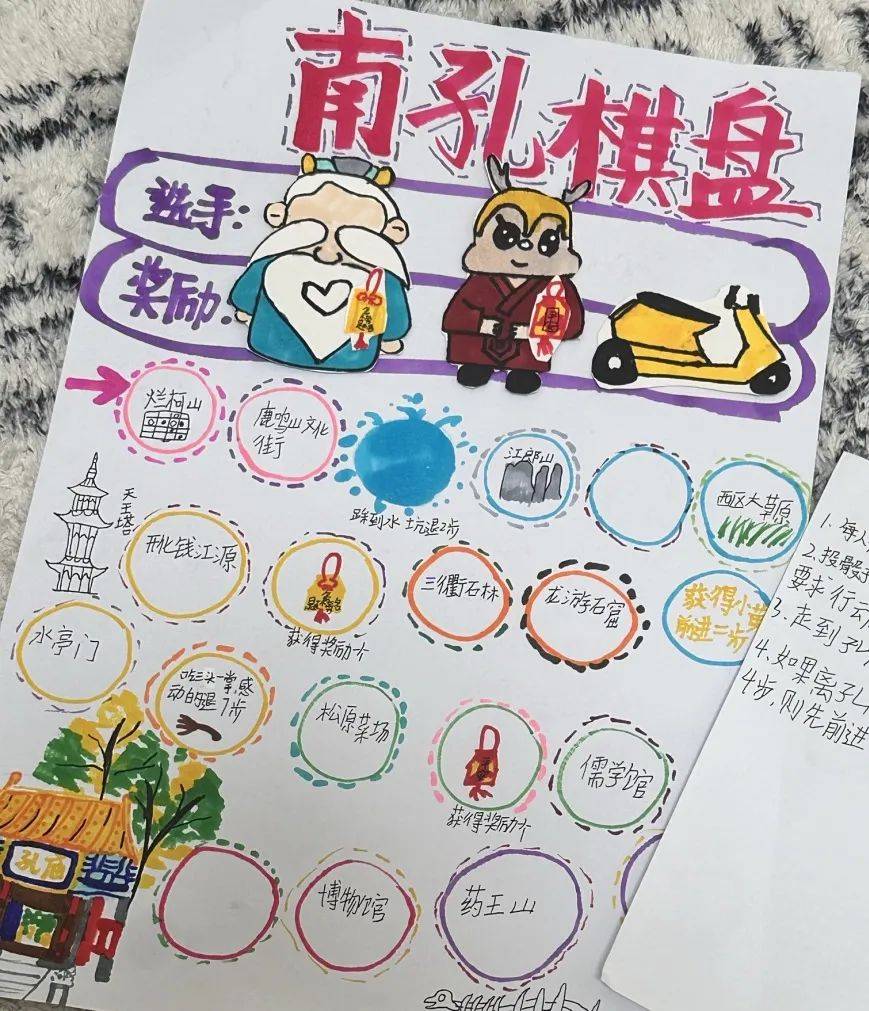 南孔棋盘
选手:
奖励:
烂柯山
鹿鸣山文化
街
踩到水坑退2步
江郎山
西区大草原
天王塔
开化钱江源
获得奖励个
三衢石林
龙游石窟
获得小黄
前进二步
水亭门
吃三头一掌,感
动的退7步
松原菜场
获得奖励个
儒学馆
孔庙
博物馆
药王山
1. 每人
2. 投骰子
要求行
3. 走到孔
4. 如果离孔
4步,则先前进